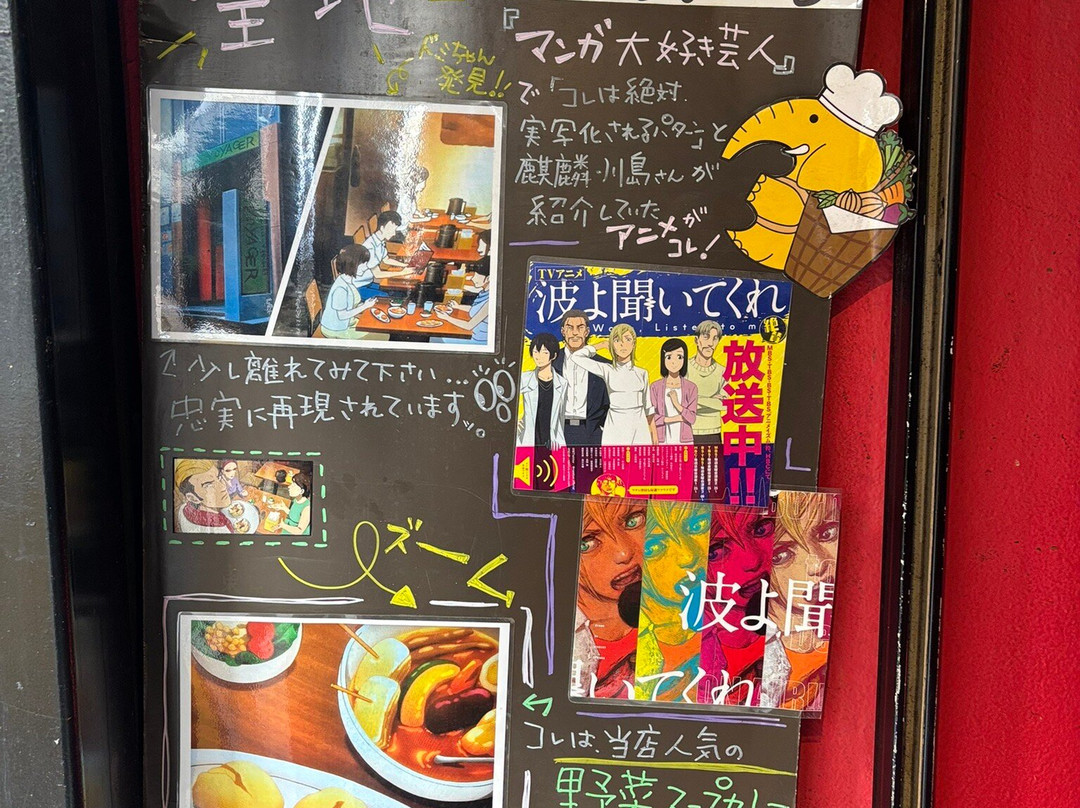 聖地
『マンガ大好き芸人』
ドミちゃん
発見!!
で「コレは絶対
実写化されるパターン」と
麒麟・川島さんが
紹介していた
アニメが
コレ!
VOYAGER
TVアニメ
波よ聞いてくれ
Wave, Listen to m
放送中!!
↑少し離れてみて下さい...
忠実に再現されていますッ。
ズーム
波よ聞
いてくれ
コレは、当店人気の
野菜スープカレー